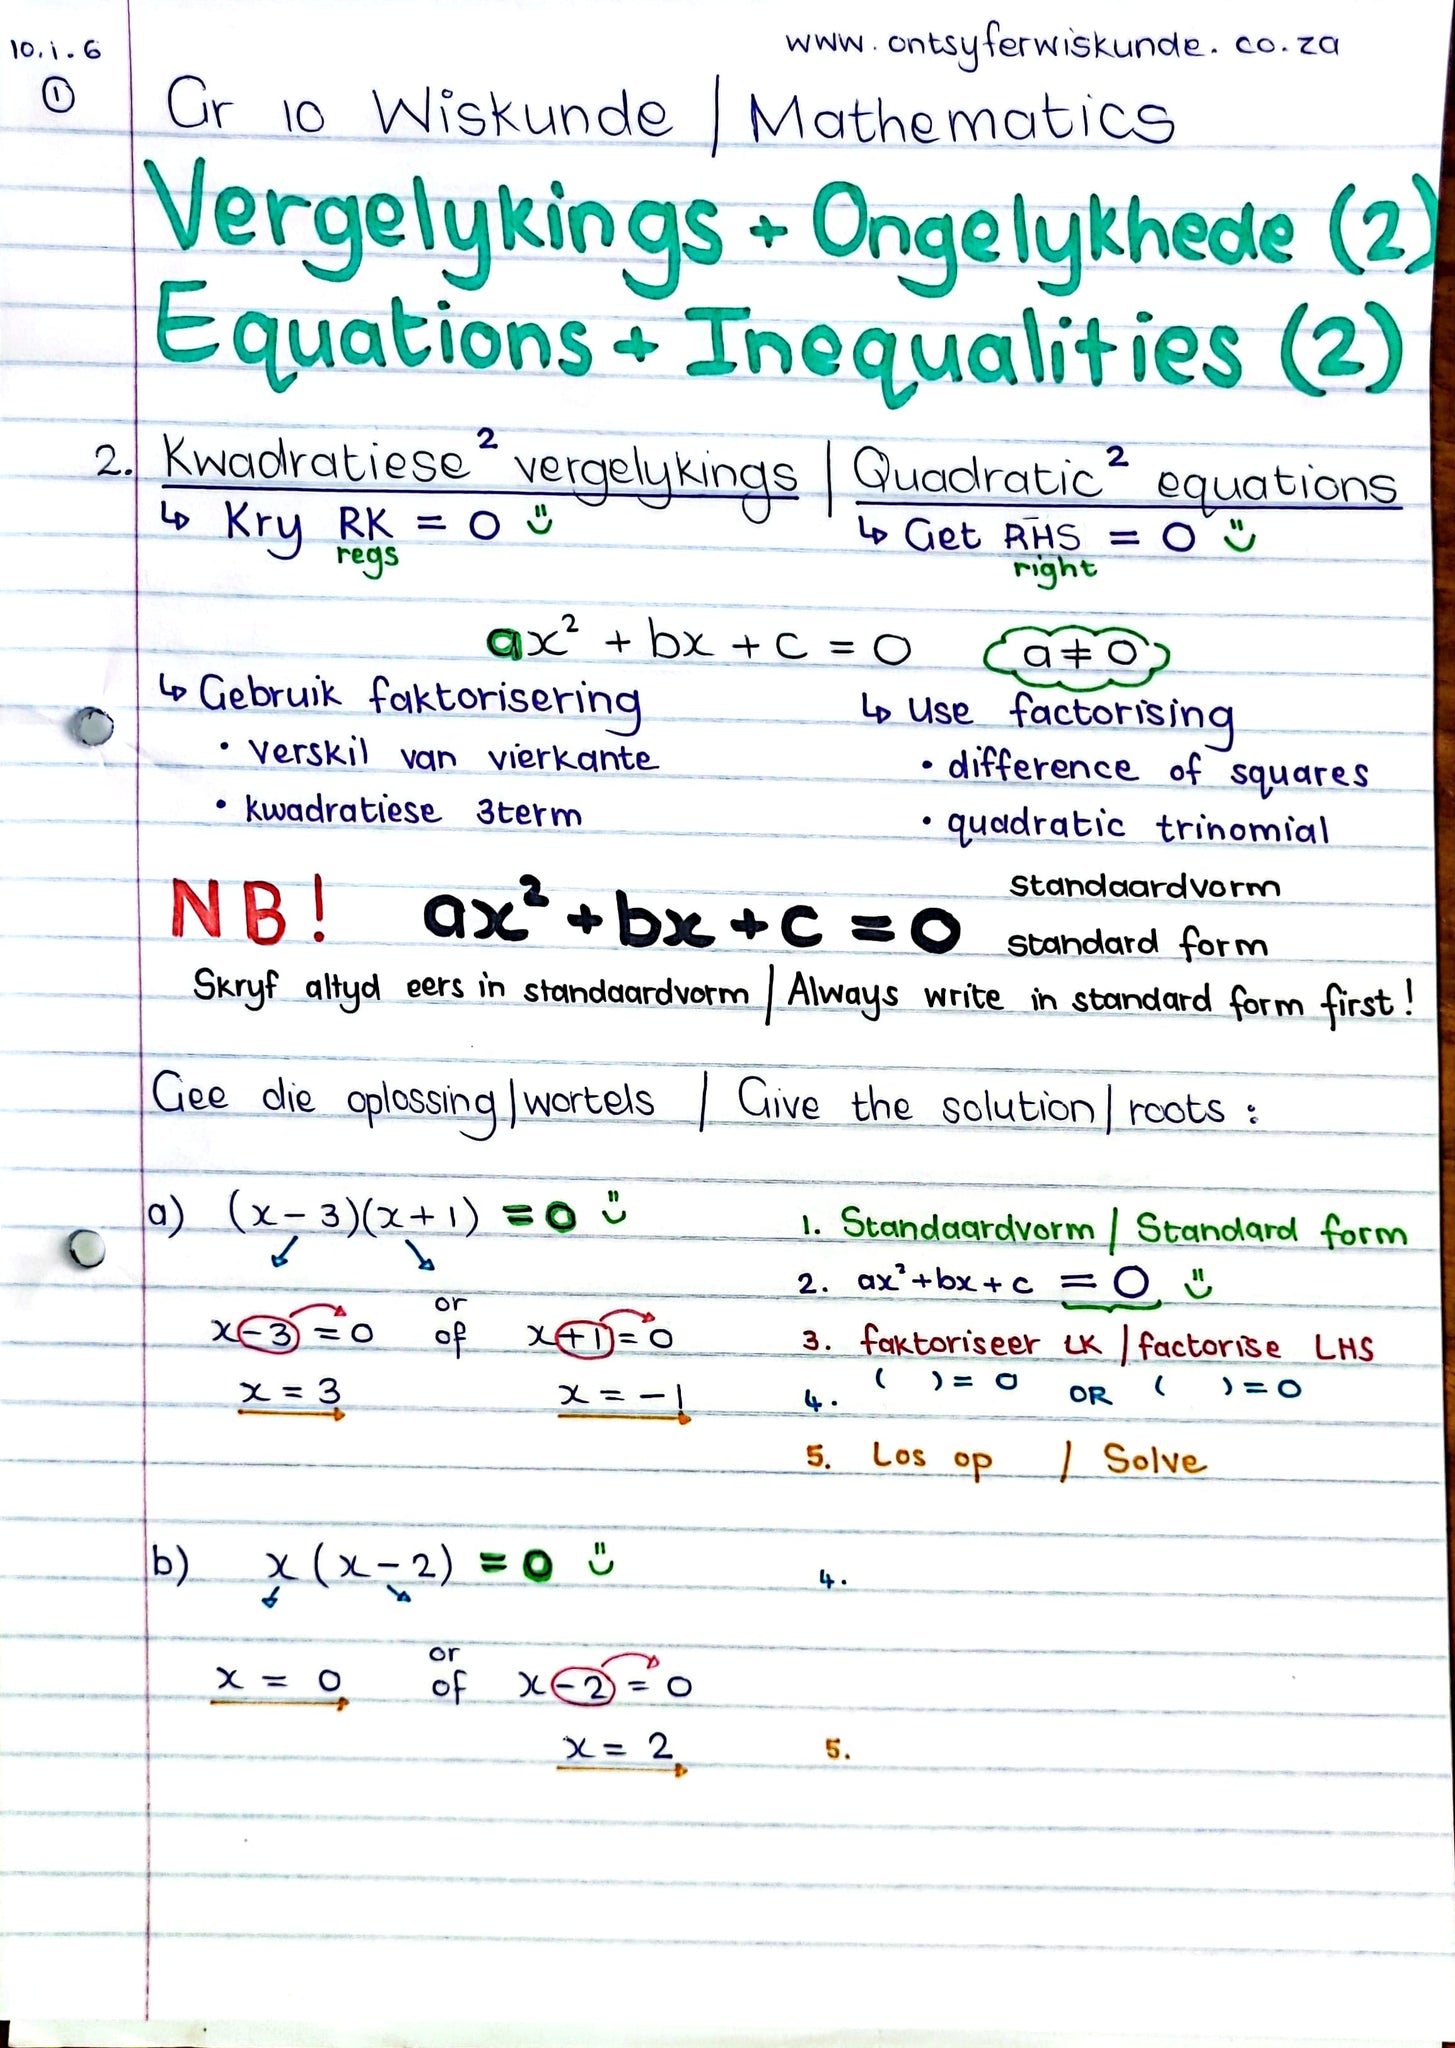 10.1.6
www.ontsyferwiskunde.co.za
①
Gr 10 Wiskunde | Mathematics
Vergelykings + Ongelykhede (2)
Equations + Inequalities (2)
2. Kwadratiese² vergelykings | Quadratic² equations
↳ Kry RK = 0 ↳ Get RHS = 0
regs right
ax² + bx + c = 0 a ≠ 0
↳ Gebruik faktorisering ↳ Use factorising
• verskil van vierkante • difference of squares
• kwadratiese 3term • quadratic trinomial
NB! ax² + bx + c = 0 standaardvorm
standard form
Skryf altyd eers in standaardvorm | Always write in standard form first!
Gee die oplossing|wortels | Give the solution|roots:
a) (x - 3)(x + 1) = 0 1. Standaardvorm | Standard form
2. ax² + bx + c = 0
or
x - 3 = 0 of x + 1 = 0 3. faktoriseer LK | factorise LHS
x = 3 x = -1 4. ( ) = 0 OR ( ) = 0
5. Los op / Solve
b) x (x - 2) = 0 4.
or
x = 0 of x - 2 = 0
x = 2 5.